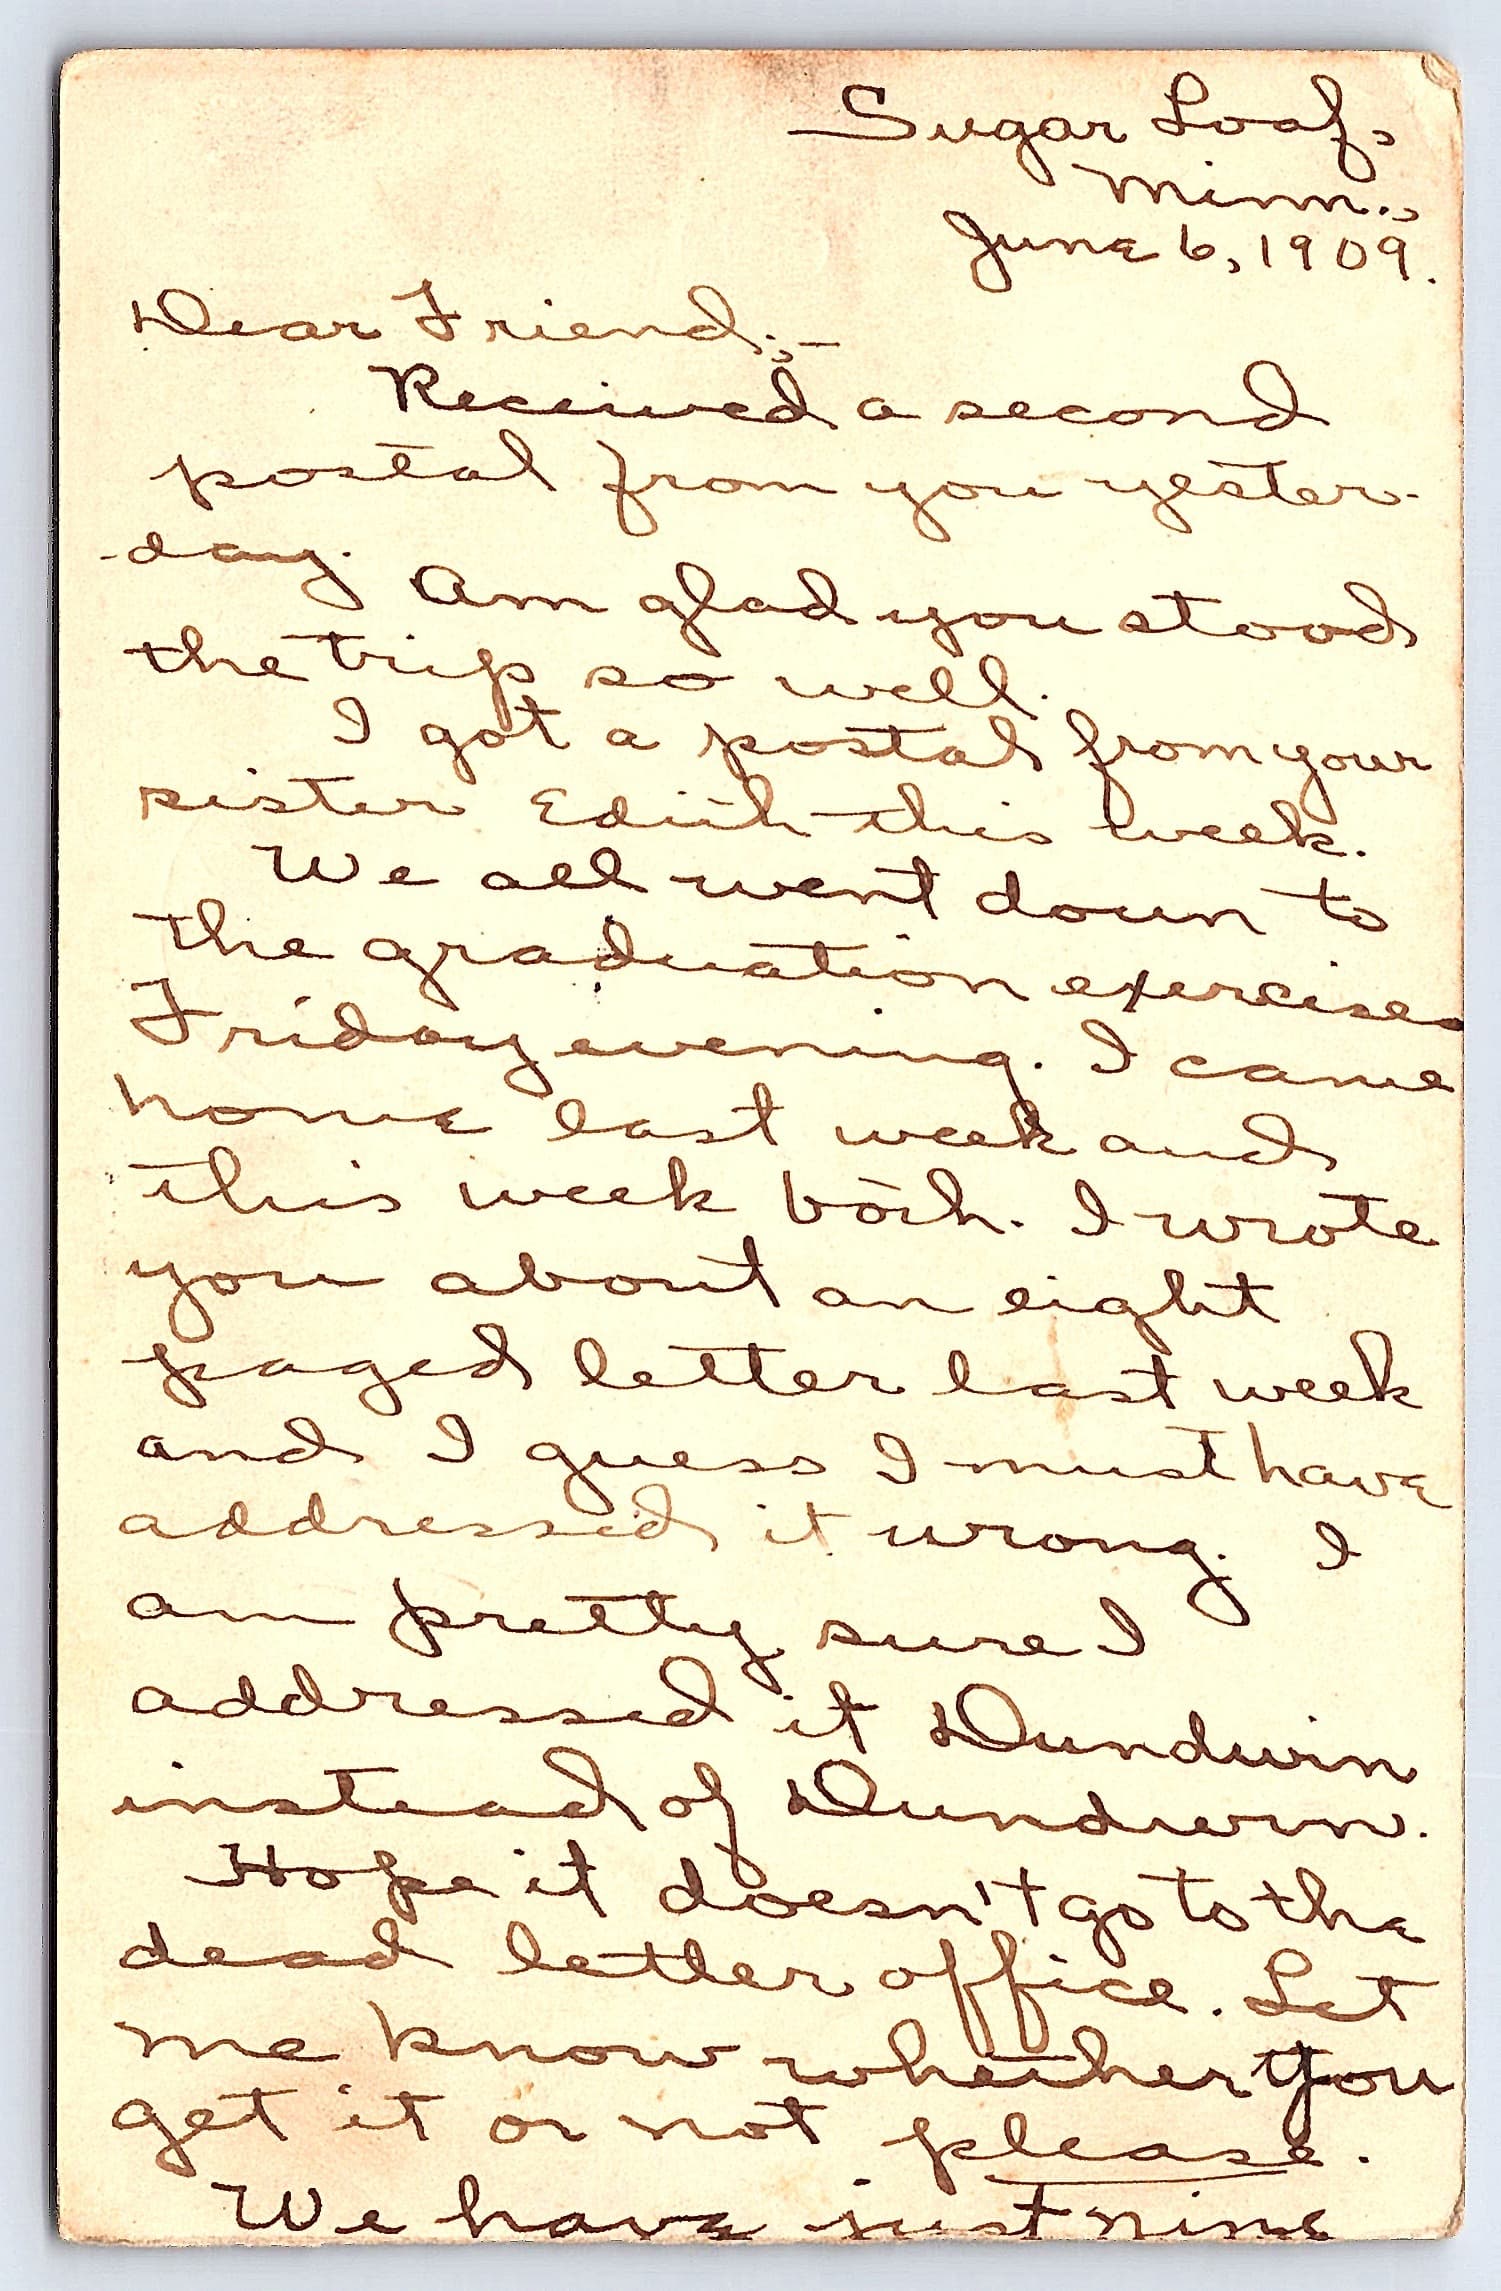 Sugar Loaf,
Minn.,
June 6, 1909.
Dear Friend;—
Received a second
postal from you yester-
-day. Am glad you stood
the trip so well.
I got a postal from your
sister Edith this week.
We all went down to
the graduation exercises
Friday evening. I came
home last week and
this week both. I wrote
you about an eight
paged letter last week
and I guess I must have
addressed it wrong. I
am pretty sure I
addressed it Dundwin
instead of Dundurn.
Hope it doesn't go to the
dead letter office. Let
me know whether you
get it or not please.
We have just nine